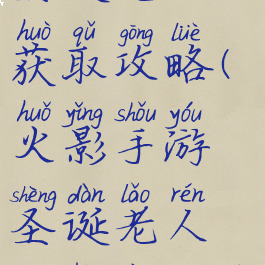 huò qǔ gōng lüè
获取攻略(
huǒ yǐng shǒu yóu
火影手游
shèng dàn lǎo rén
圣诞老人